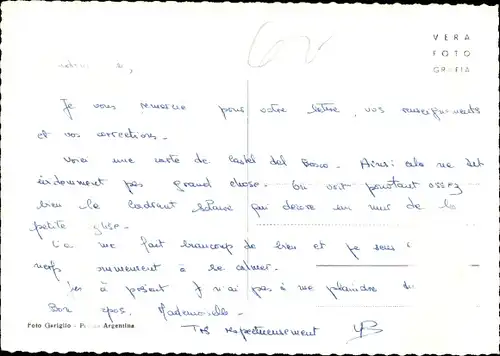 VERA
FOTO
GRAFIA
Je vous remercie pour votre lettre, vos renseignements
et vos corrections.
Voici une carte de Castel del Bosco. Ainsi cela ne dit
évidemment pas grand chose. On voit pourtant assez
bien le cadrant solaire qui décore un mur de la
petite
me fait beaucoup de bien et je sens
nerfs à se calmer.
à présent je n'ai pas à me plaindre
Bon repos, Mademoiselle.
Très respectueusement
Foto Gariglio - Argentina